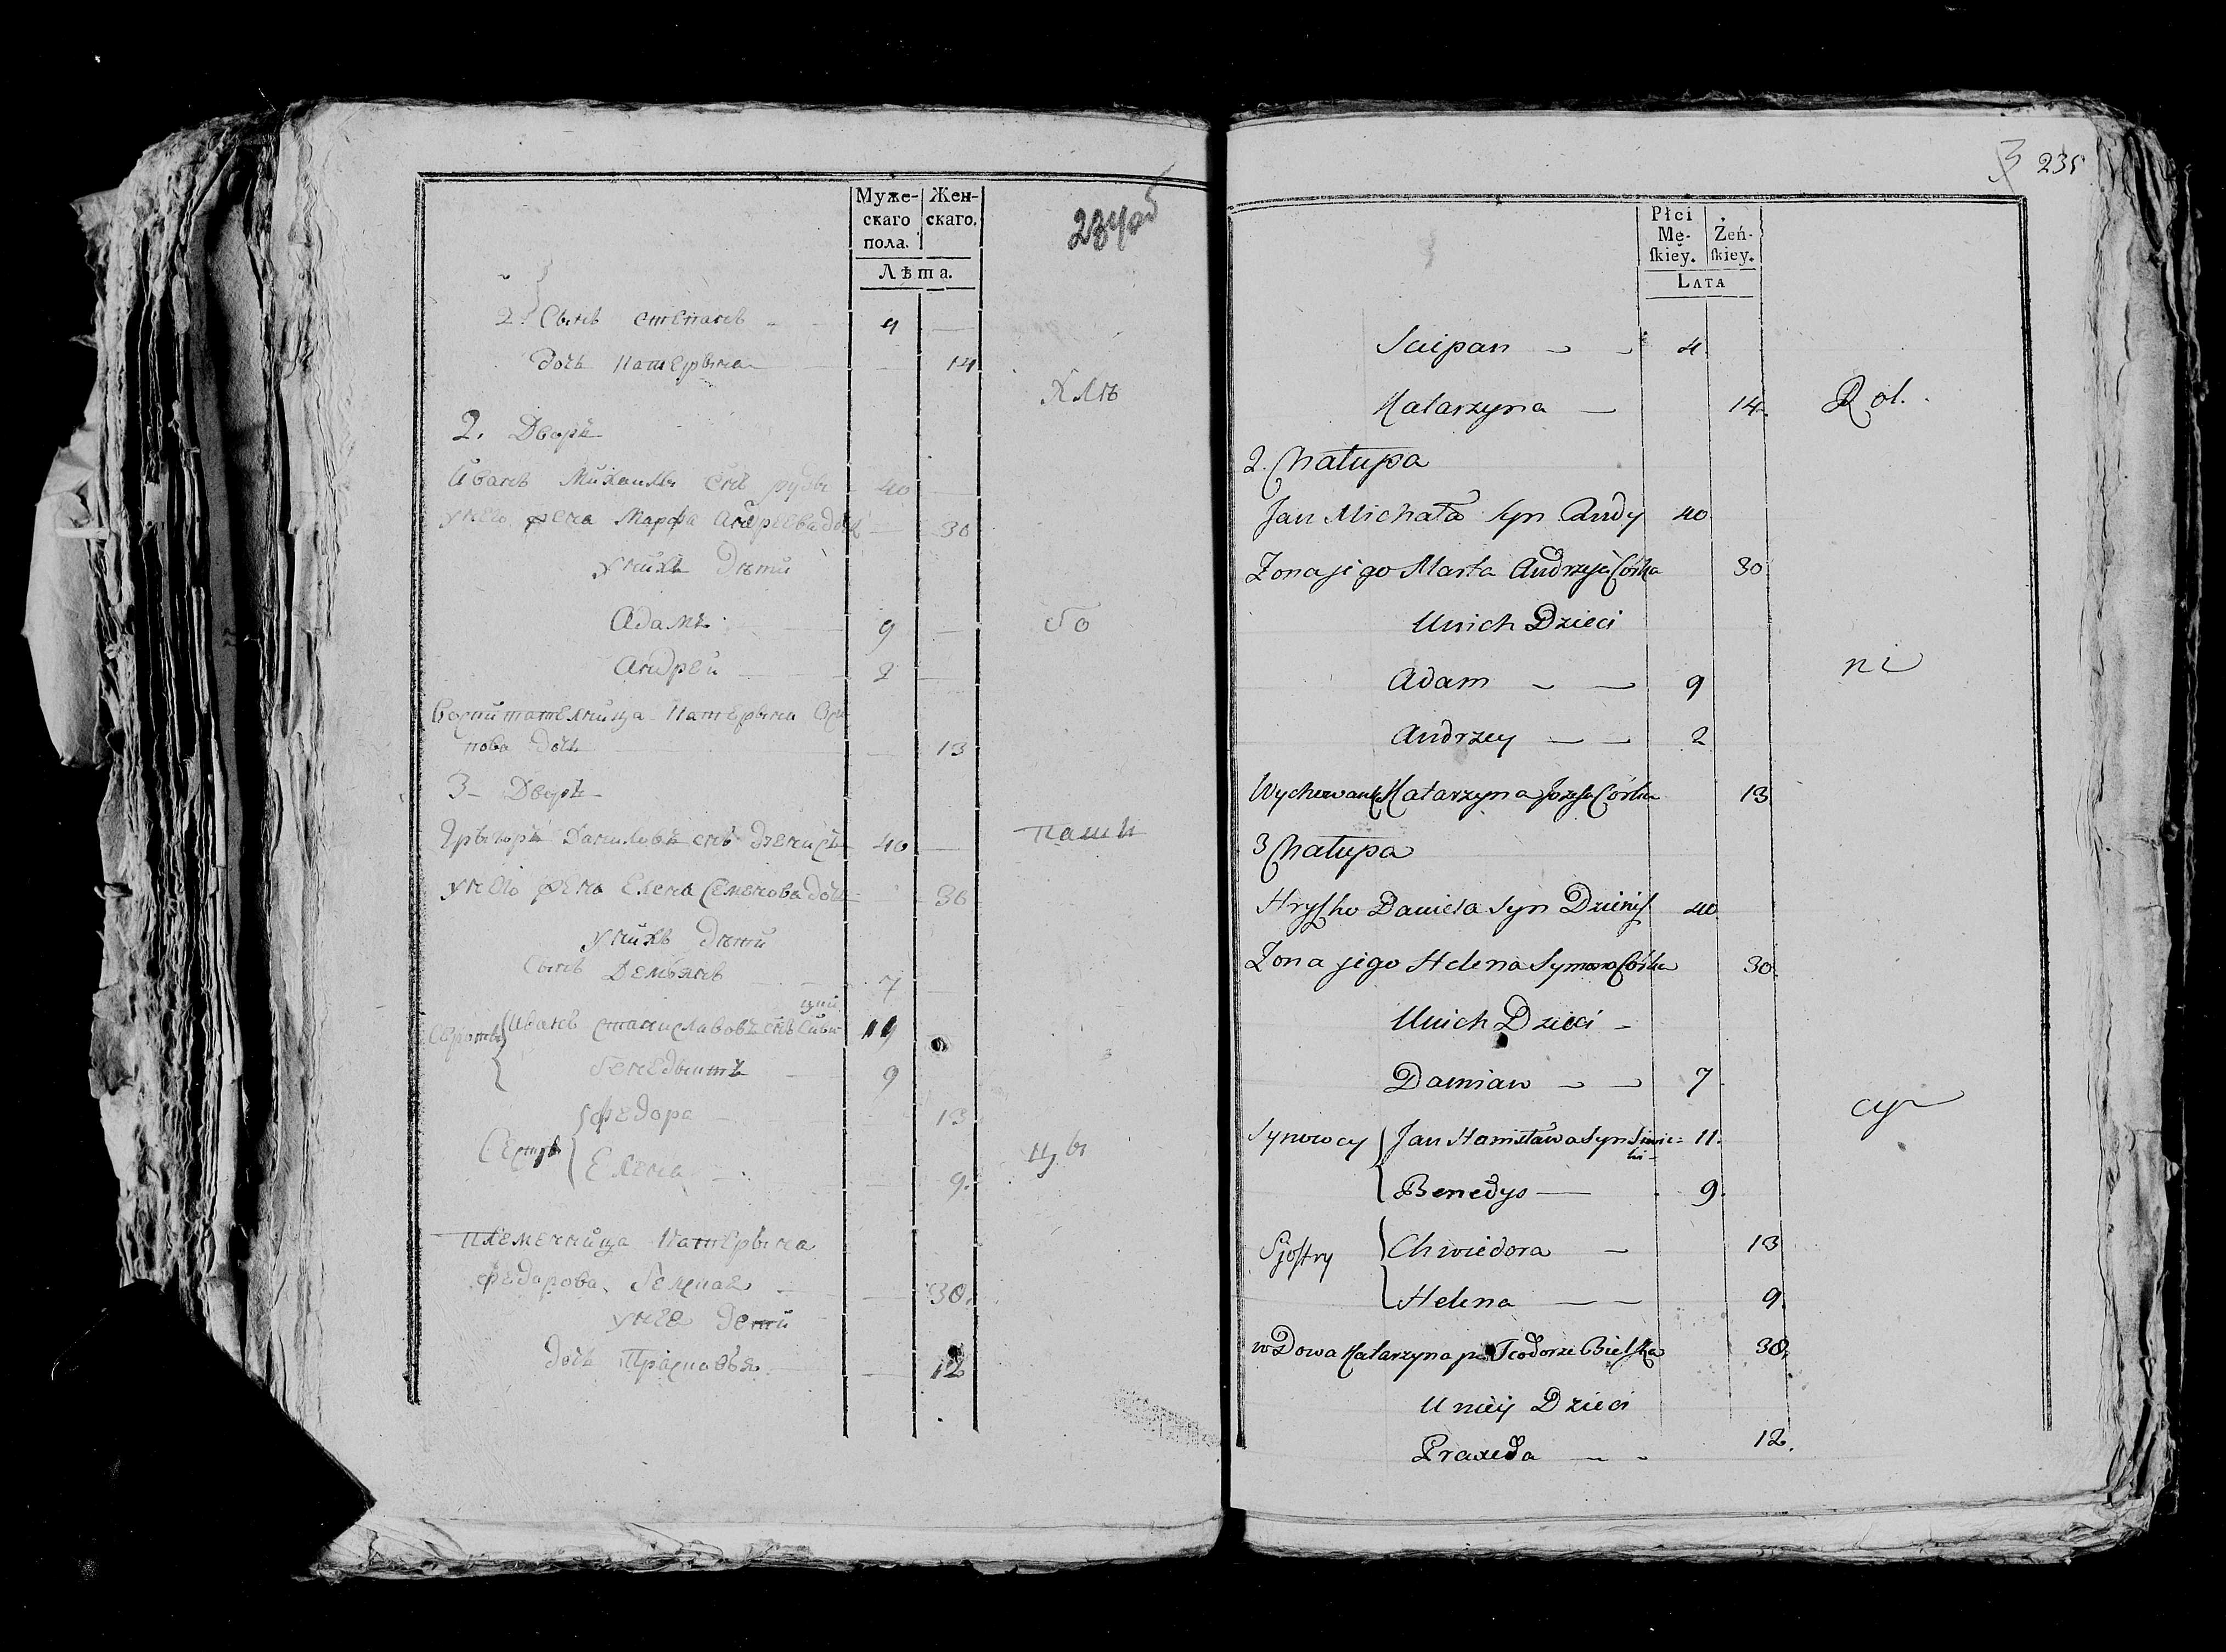 Муже-
скаго
пола.
Жен-
скаго.
Лѣта.
234об
2. Сынъ Степанъ 4
дочь Катерына 14
Хлѣ
2. Дворъ
Иванъ Михаила снъ 40
У него жена Марфа Андреева дочь 30
У нихъ дѣти
Адамъ 9
бо
Андрей 2
Воспитателница Катерына
пова дочь 13
3 Дворъ
Грыгоръ Даниловъ снъ Дзенисъ 40
паш
У него жена Елена Семенова дочь 30
У нихъ дѣти
Сынъ Демьянъ 7
Сироты Иванъ Станиславовъ снъ 11
Бенедыктъ 9
Сестры Федора 13
Елена 9.
цы
Племенница Катерына
Федорова 30.
У нее дети
дочь Прасковья 12
3 235
Płci
Mę-
ſkiey.
Żeń-
ſkiey.
LATA
Sciepan 4
Katarzyna 14.
Rol.
2. Chałupa
Jan Michała Syn 40
Zona jego Marta Andrzeja Córka 30
U nich Dzieci
Adam 9
ni
Andrzey 2
Wychowanka Katarzyna Jozefa Córka 13
3 Chałupa
Hryſko Daniela Syn Dzieniſ 40
Zona jego Helena Symona Córka 30
U nich Dzieci
Damian 7
cy
Synowcy Jan Stanisława Syn 11.
Benedys 9.
Sjoſtry Chwiedora 13
Helena 9.
wdowa Katarzyna po Teodorze Bielſka 30.
U niey Dzieci
Praxeda 12.